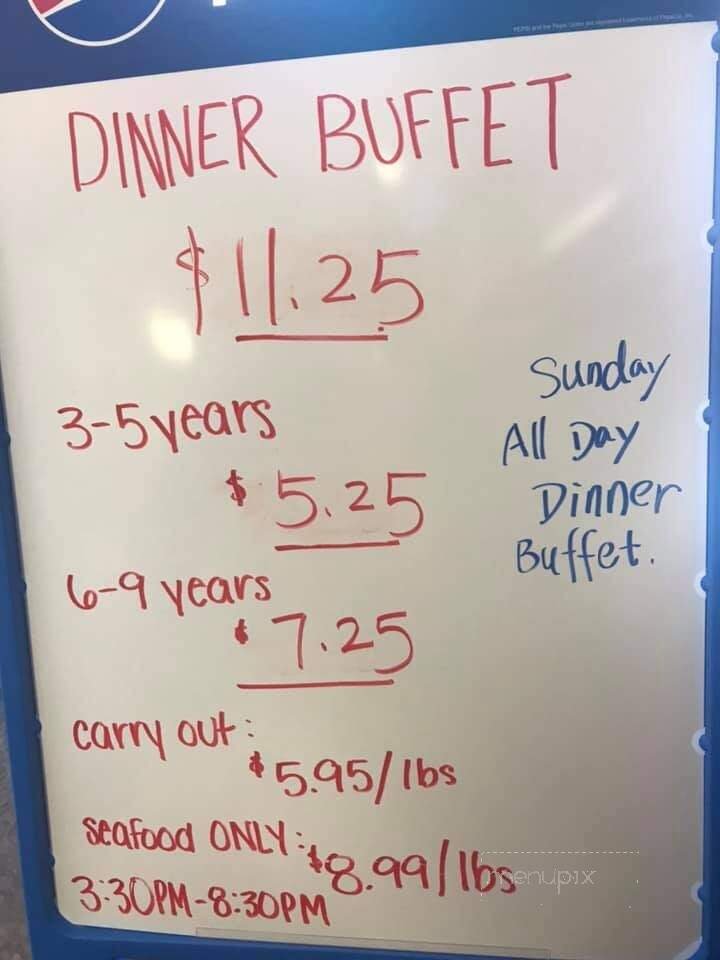 DINNER BUFFET
$11.25
3-5 years
$5.25
6-9 years
$7.25
carry out:
$5.95/lbs
seafood ONLY:
$8.99/lbs
3:30PM-8:30PM
Sunday
All Day
Dinner
Buffet.
menupix